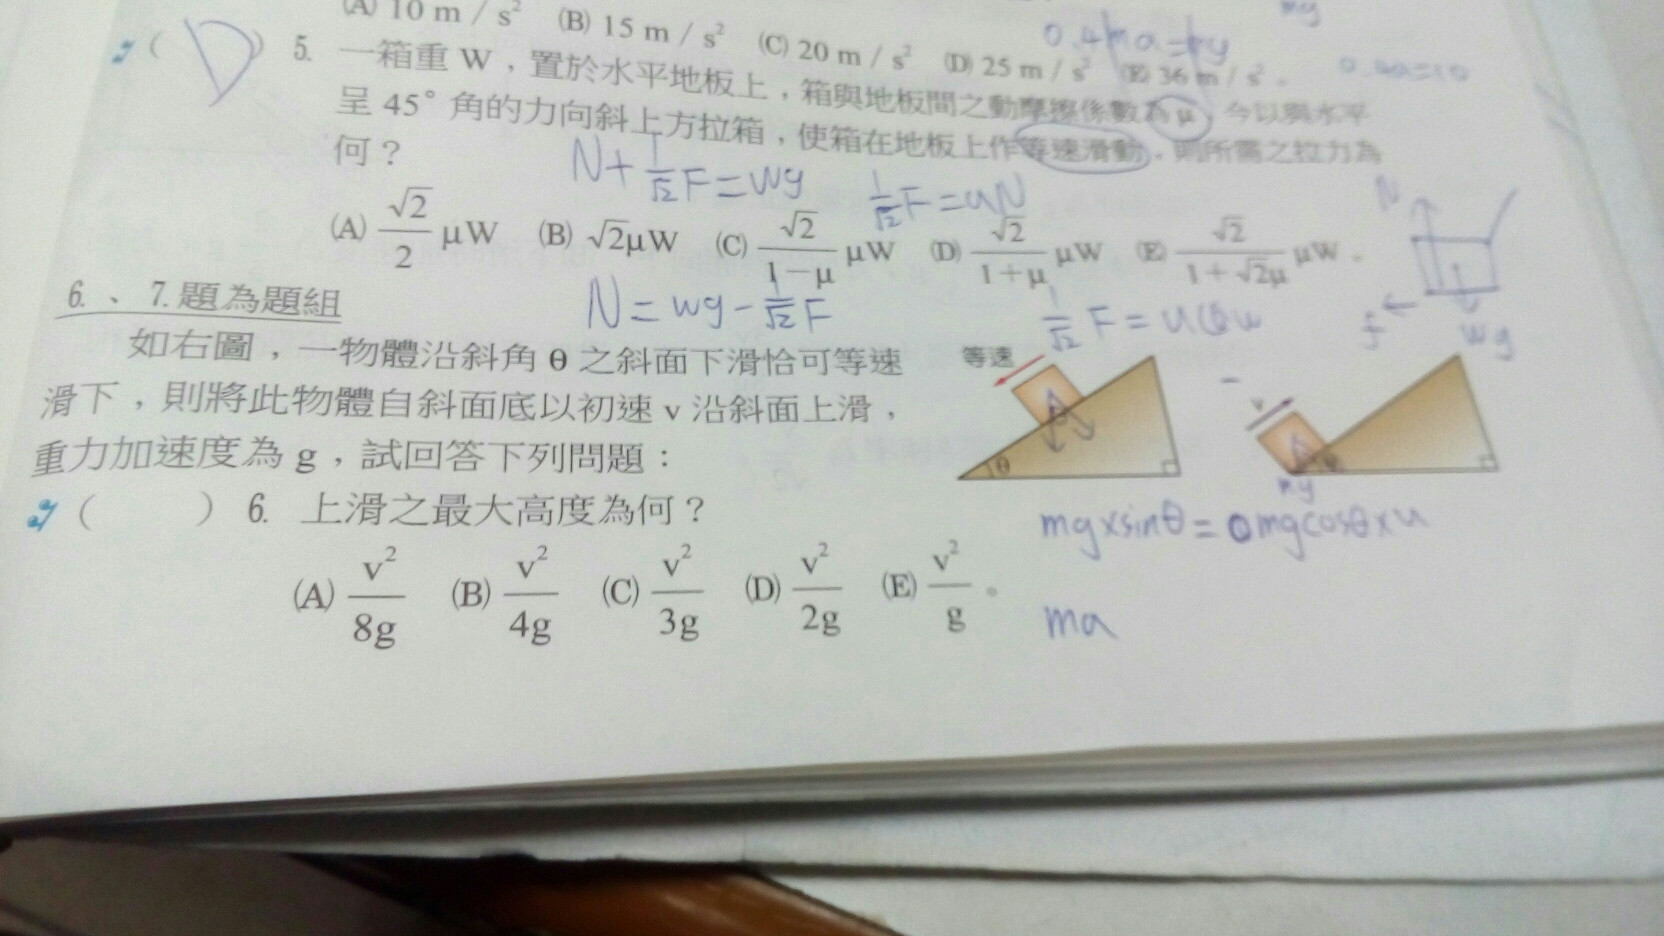 (A) 10 m / s² (B) 15 m / s² (C) 20 m / s² (D) 25 m / s² (E) 36 m / s²。
my
0.4ma=my
0.4a=10
( D ) 5. 一箱重 W，置於水平地板上，箱與地板間之動摩擦係數為 μ，今以與水平
呈 45° 角的力向斜上方拉箱，使箱在地板上作等速滑動，則所需之拉力為
何？
N+1/√2 F=Wg
1/√2 F=uN
(A) √2/2 μW (B) √2μW (C) √2/(1−μ) μW (D) √2/(1+μ) μW (E) √2/(1+√2μ) μW。
N
f
Wg
N=wg-1/√2 F
1/√2 F=u
6.、7.題為題組
如右圖，一物體沿斜角 θ 之斜面下滑恰可等速
滑下，則將此物體自斜面底以初速 v 沿斜面上滑，
重力加速度為 g，試回答下列問題：
等速
θ
v
mg
( ) 6. 上滑之最大高度為何？
mg×sinθ=mgcosθ×u
(A) v²/8g (B) v²/4g (C) v²/3g (D) v²/2g (E) v²/g。
ma